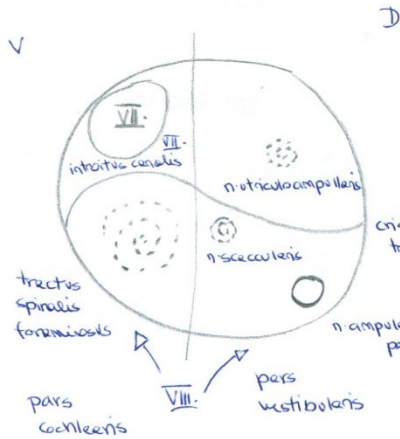 V
D
VII.
VII.
introitus canalis
n. utriculoampullaris
n. saccularis
tractus
spiralis
foraminosus
n. ampul
VIII.
pars
cochlearis
pars
vestibularis